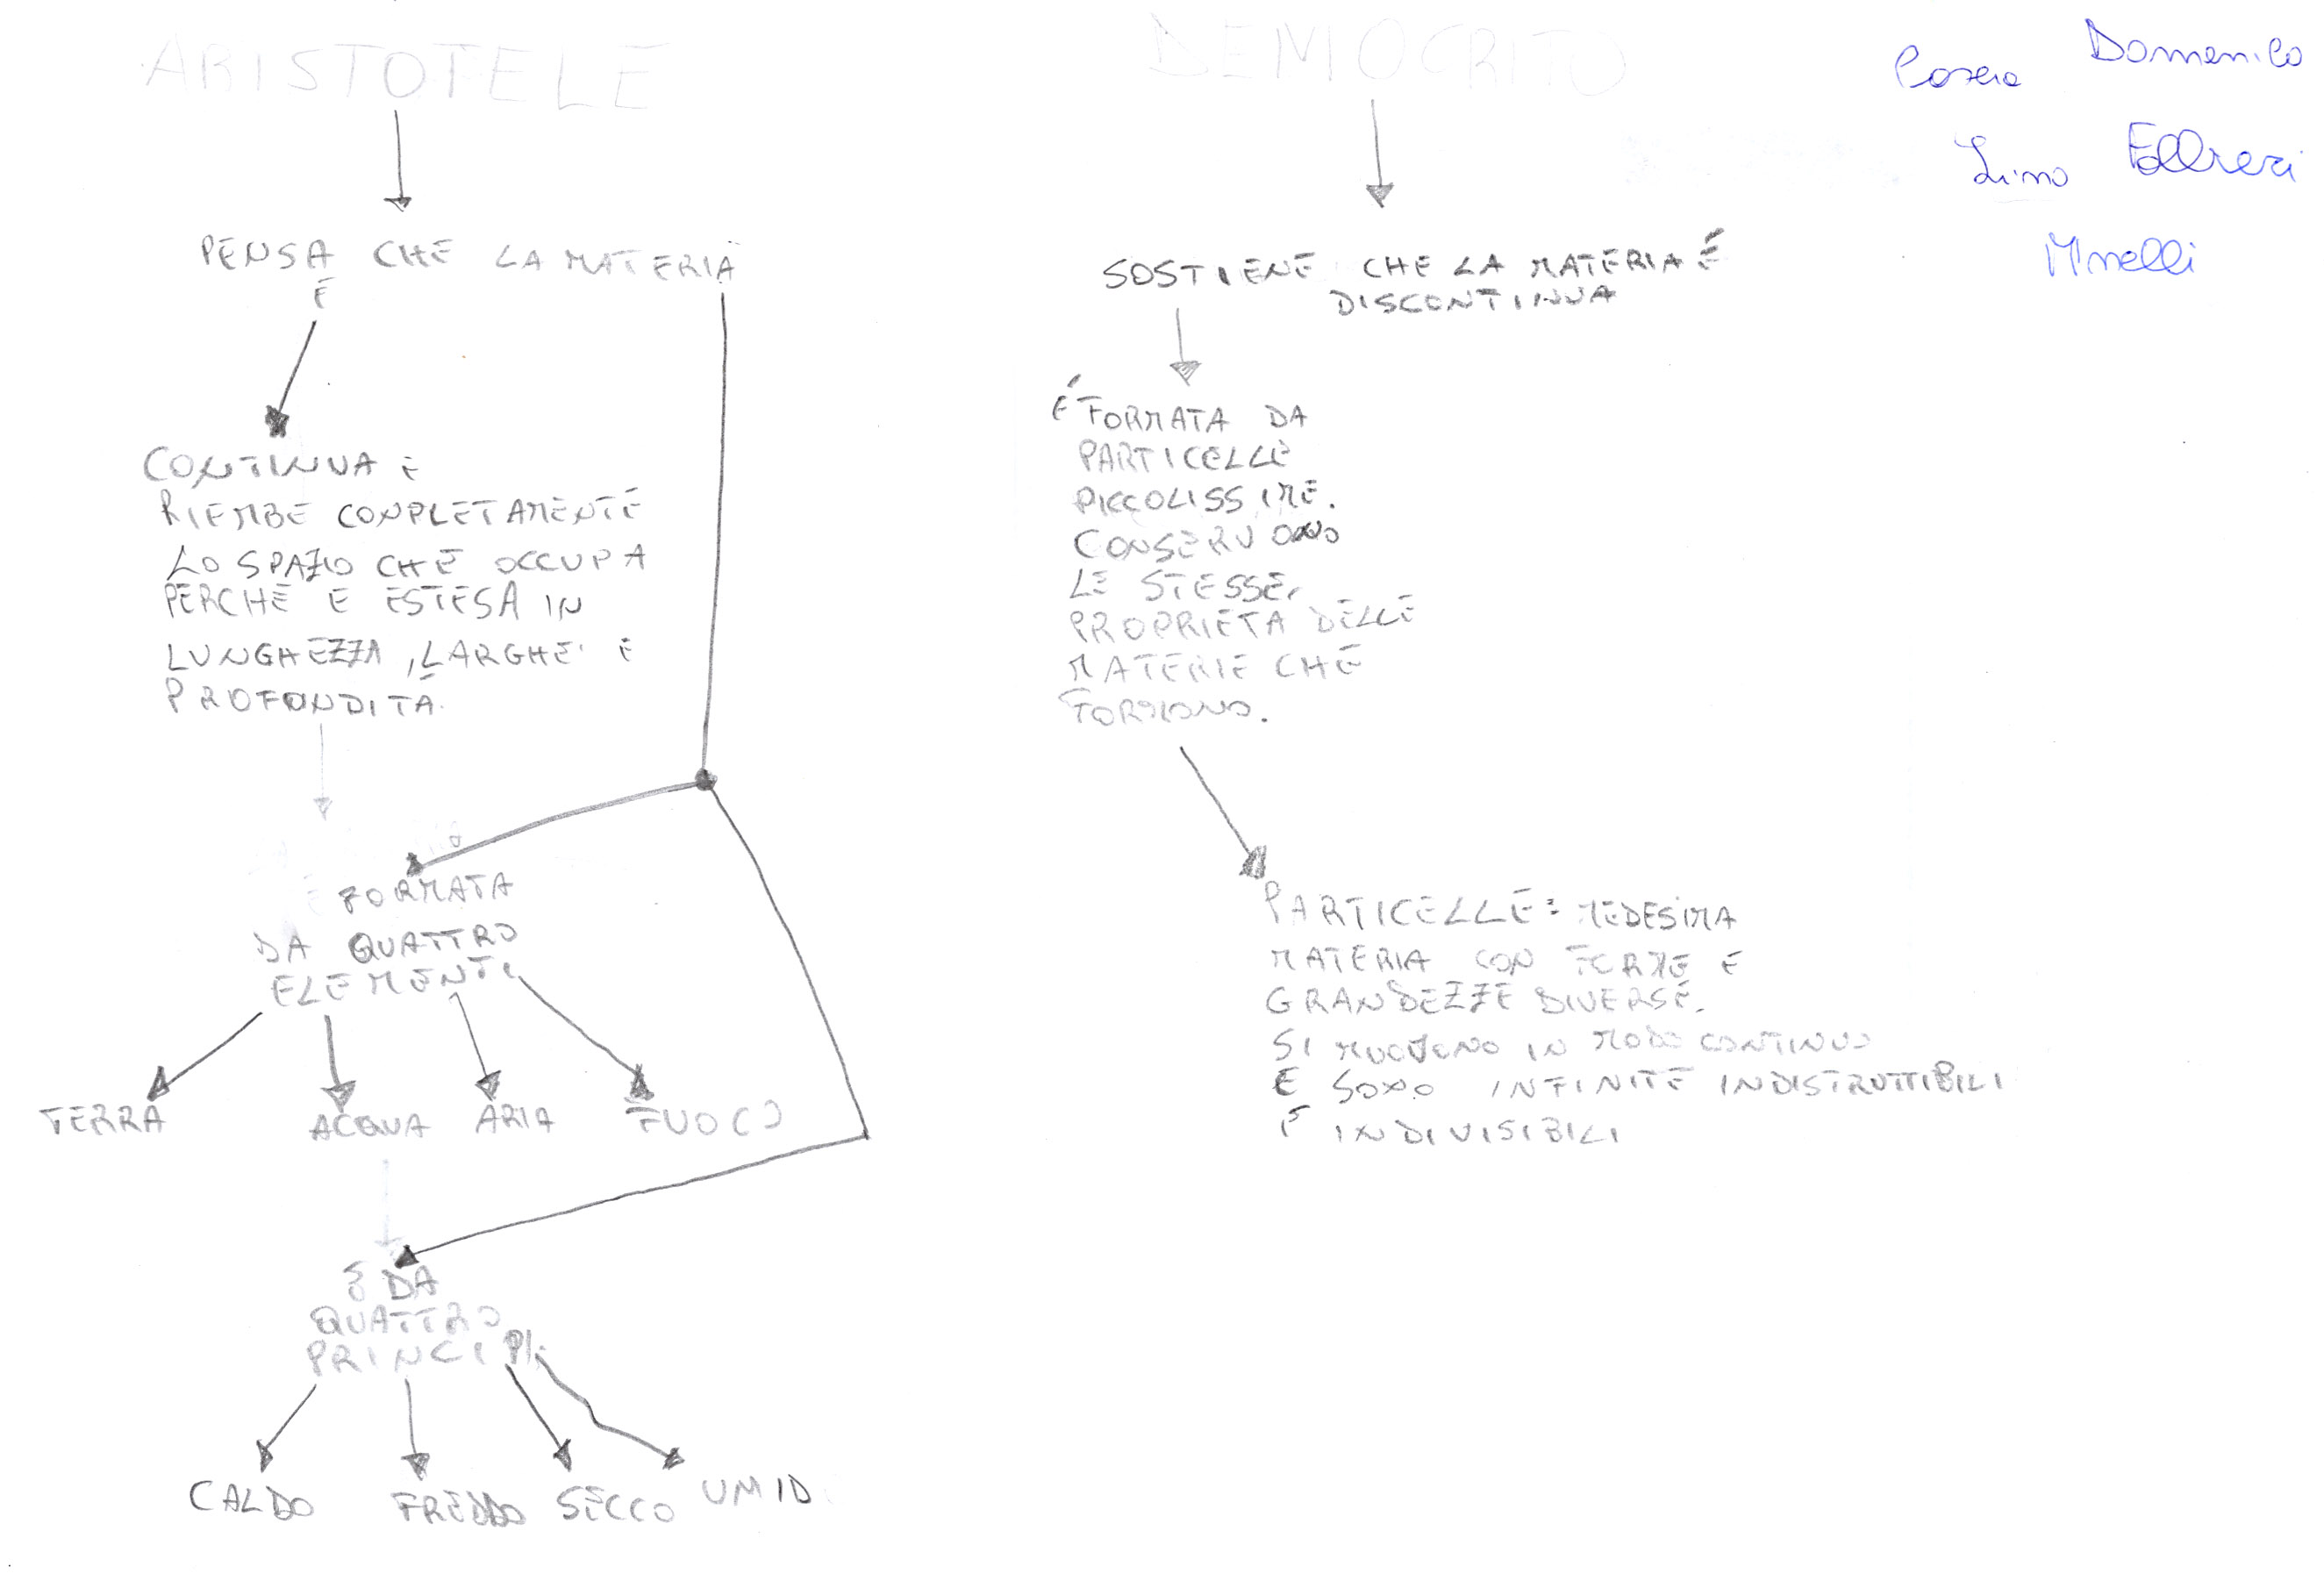 ARISTOTELE
PENSA CHE LA MATERIA
É
CONTINUA E
RIEMBE COMPLETAMENTE
LO SPAZIO CHE OCCUPA
PERCHÉ E ESTESA IN
LUNGHEZZA, LARGHE' E
PROFONDITÁ.
É FORMATA
DA QUATTRO
ELEMENTI
TERRA ACQUA ARIA FUOCO
E DA
QUATTRO
PRINCIPI
CALDO FREDDO SECCO UMID
DEMOCRITO
SOSTIENE CHE LA MATERIA É
DISCONTINUA
É FORMATA DA
PARTICELLE
PICCOLISSIME.
CONSERVONO
LE STESSE
PROPRIETA DELLE
MATERIE CHE
FORMONO.
PARTICELLE: MEDESIMA
MATERIA CON FORME E
GRANDEZZE DIVERSE.
SI MUOVONO IN MODO CONTINUO
E SONO INFINITE INDISTRUTTIBILI
E INDIVISIBILI
Domenico
Lino